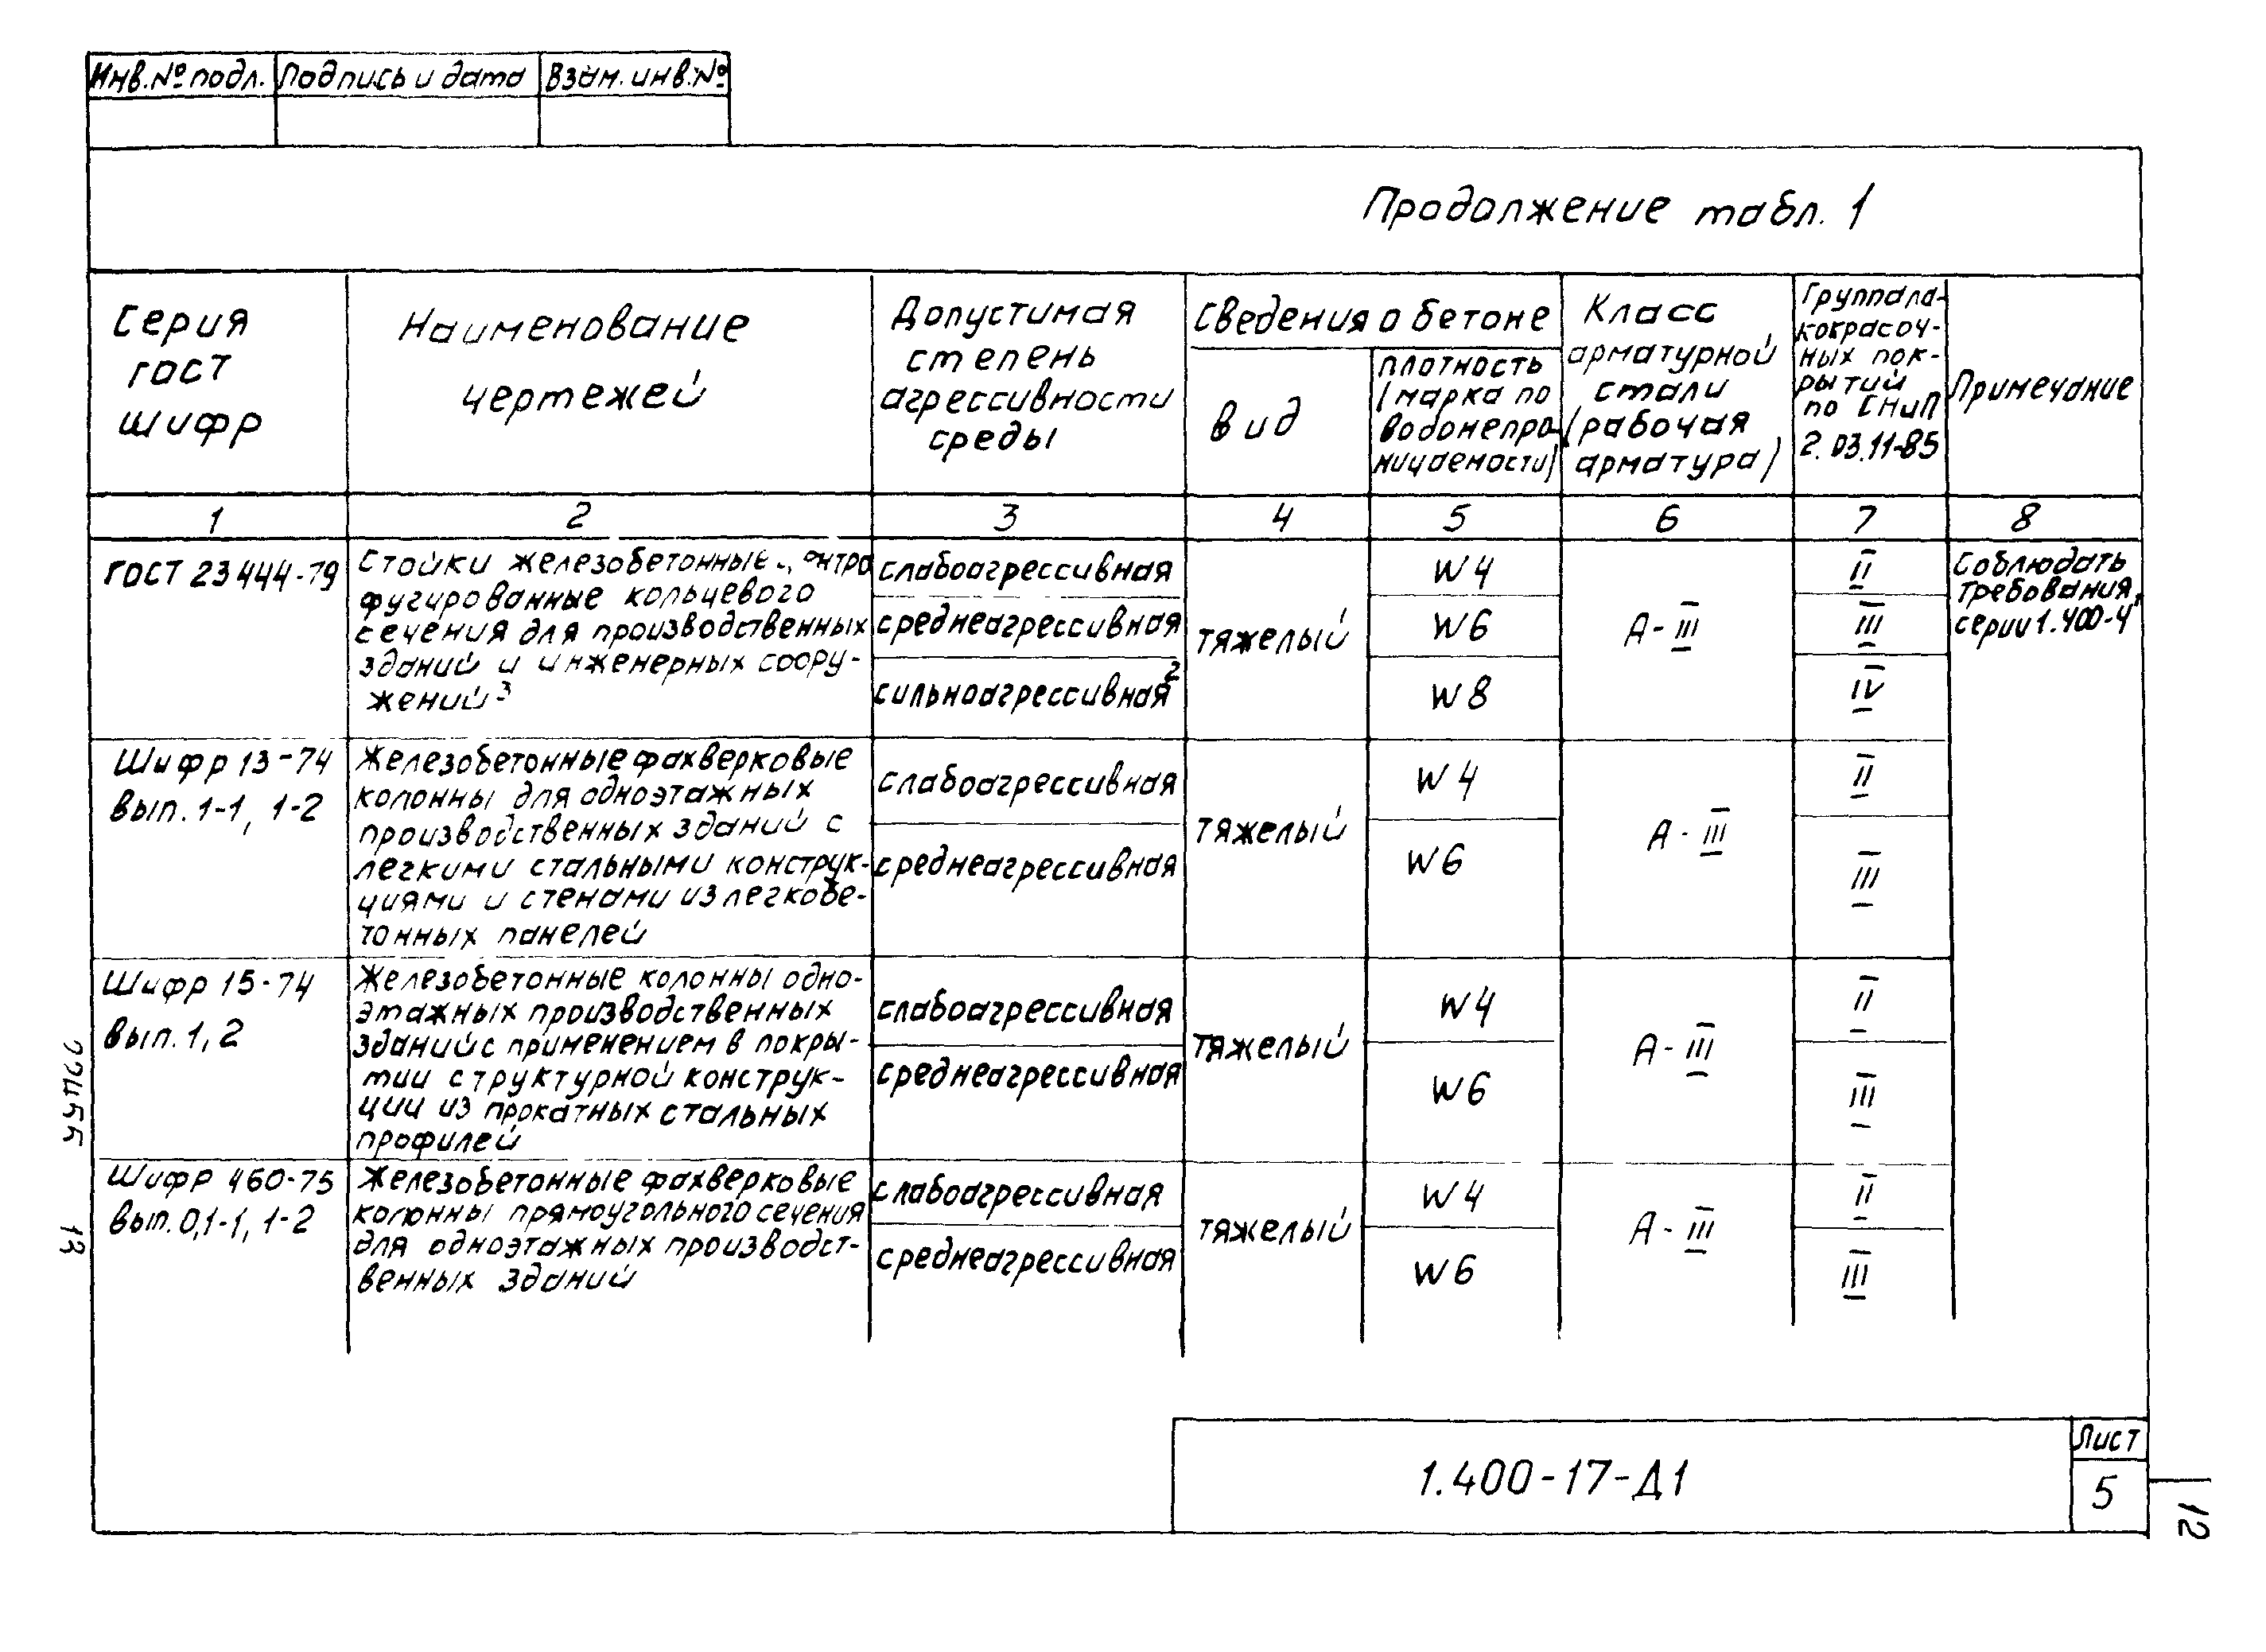 Инв. № подл. Подпись и дата Взам. инв. №
Продолжение табл. 1
Серия
ГОСТ
шифр
Наименование
чертежей
Допустимая
степень
агрессивности
среды
Сведения о бетоне
вид
плотность
(марка по
водонепро-
ницаемости)
Класс
арматурной
стали
(рабочая
арматура)
Группа ла-
кокрасоч-
ных пок-
рытий
по СНиП
2.03.11-85
Примечание
1 2 3 4 5 6 7 8
ГОСТ 23444-79
Стойки железобетонные
фугированные кольцевого
сечения для производственных
зданий и инженерных соору-
жений3
слабоагрессивная
среднеагрессивная
сильноагрессивная2
тяжелый
W4
W6
W8
А-III
II
III
IV
Соблюдать
требования
серии 1.400-4
Шифр 13-74
вып. 1-1, 1-2
Железобетонные фахверковые
колонны для одноэтажных
производственных зданий с
легкими стальными конструк-
циями и стенами из легкобе-
тонных панелей
слабоагрессивная
среднеагрессивная
тяжелый
W4
W6
А-III
II
III
Шифр 15-74
вып. 1, 2
Железобетонные колонны одно-
этажных производственных
зданий с применением в покры-
тии структурной конструк-
ции из прокатных стальных
профилей
слабоагрессивная
среднеагрессивная
тяжелый
W4
W6
А-III
II
III
Шифр 460-75
вып. 0,1-1, 1-2
Железобетонные фахверковые
колонны прямоугольного сечения
для одноэтажных производст-
венных зданий
слабоагрессивная
среднеагрессивная
тяжелый
W4
W6
А-III
II
III
1.400-17-Д1
Лист
5
12
13